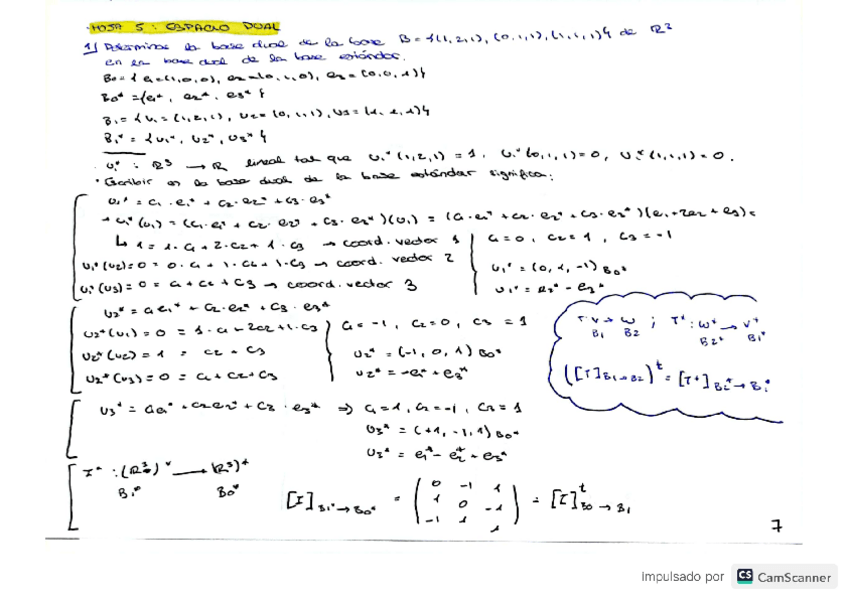 HOJA 5: ESPACIO DUAL
1) Determinar la base dual de la base B = {(1,2,1), (0,1,1), (1,1,1)} de R³
en la base dual de la base estándar.
B₀ = { e₁=(1,0,0), e₂=(0,1,0), e₃=(0,0,1)}
B₀* = {e₁*, e₂*, e₃*}
B₁ = {u₁ = (1,2,1), u₂ = (0,1,1), u₃ = (1,1,1)}
B₁* = {u₁*, u₂*, u₃*}
u₁* : R³ → R lineal tal que u₁*(1,2,1) = 1, u₁*(0,1,1)=0, u₁*(1,1,1)=0.
· Escribir en la base dual de la base estándar significa:
u₁* = c₁·e₁* + c₂·e₂* + c₃·e₃*
u₁*(u₁) = (c₁·e₁* + c₂·e₂* + c₃·e₃*)(u₁) = (c₁·e₁* + c₂·e₂* + c₃·e₃*)(e₁+2e₂+e₃) =
↳ 1 = 1·c₁ + 2·c₂ + 1·c₃ → coord. vector 1
u₁*(u₂) = 0 = 0·c₁ + 1·c₂ + 1·c₃ → coord. vector 2
u₁*(u₃) = 0 = c₁ + c₂ + c₃ → coord. vector 3
c₁=0, c₂=1, c₃=-1
u₁* = (0,1,-1)B₀*
u₁* = e₂* - e₃*
u₂* = c₁e₁* + c₂·e₂* + c₃·e₃*
u₂*(u₁) = 0 = 1·c₁ + 2c₂ + 1·c₃
u₂*(u₂) = 1 = c₂ + c₃
u₂*(u₃) = 0 = c₁ + c₂ + c₃
c₁ = -1, c₂ = 0, c₃ = 1
u₂* = (-1, 0, 1)B₀*
u₂* = -e₁* + e₃*
T: V → W ; T*: W* → V*
B₁ B₂ B₂* B₁*
([T]B₁→B₂)ᵗ = [T*]B₂*→B₁*
u₃* = c₁e₁* + c₂e₂* + c₃·e₃* ⇒ c₁=1, c₂=-1, c₃=1
u₃* = (+1, -1, 1)B₀*
u₃* = e₁* - e₂* + e₃*
I* : (R³)* → (R³)*
B₁* B₀*
[I]B₁*→B₀* = ( 0 -1 1
1 0 -1
-1 1 1 ) = [I]ᵗB₀→B₁
7
Impulsado por CS CamScanner